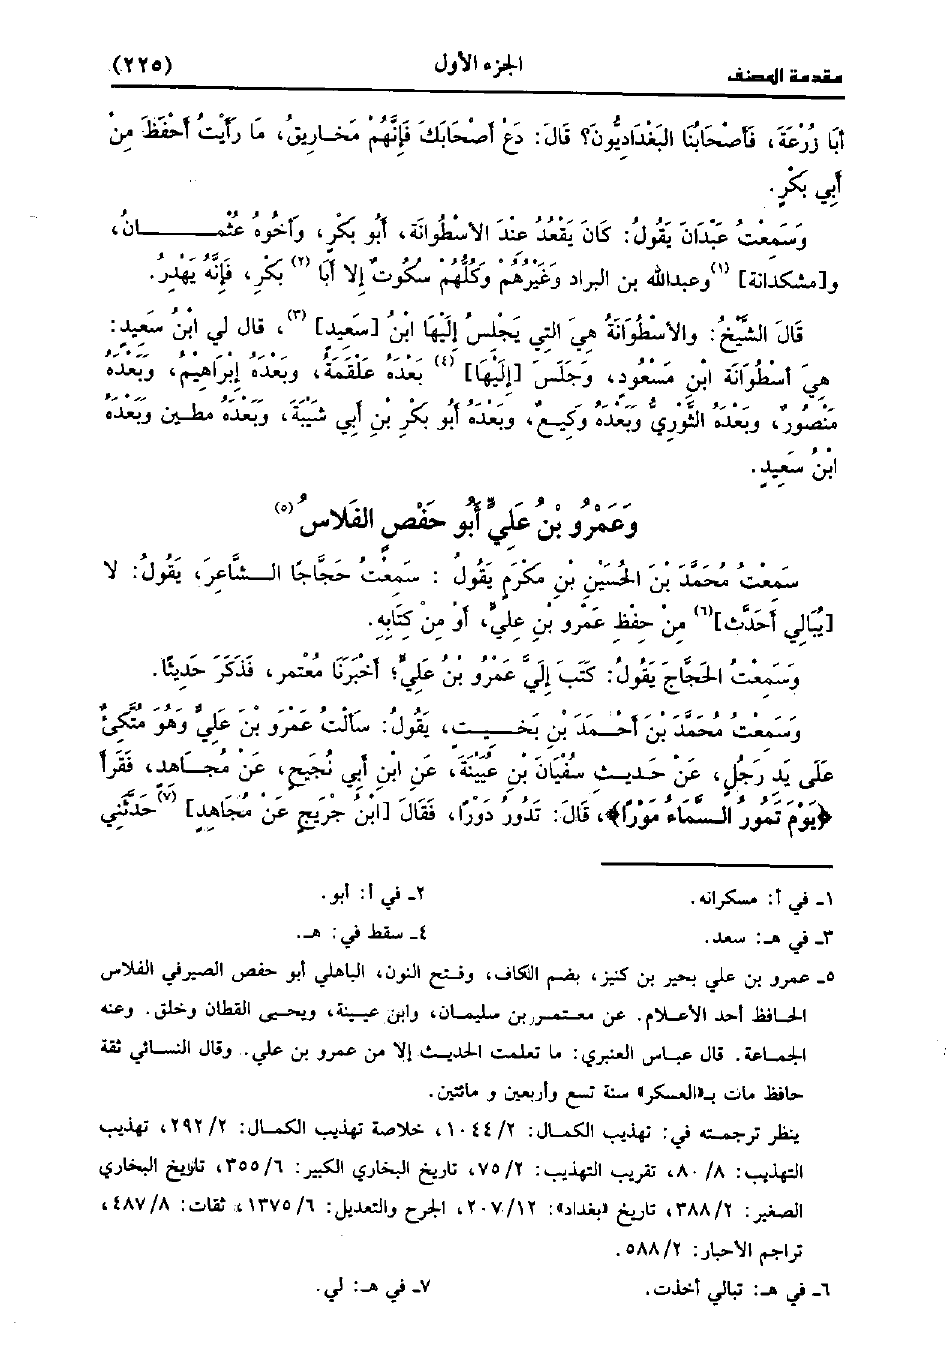 مقدمة المصنف الجزء الأول (٢٢٥)
أبَا زُرْعَةَ، فَأَصْحَابُنَا البَغْدَادِيُّونَ؟ قَالَ: دَعْ أَصْحَابَكَ فَإِنَّهُمْ مَخَارِيقُ، مَا رَأَيْتُ أَحْفَظَ مِنْ
أَبِي بَكْرٍ.
وَسَمِعْتُ عَبْدَانَ يَقُولُ: كَانَ يَقْعُدُ عِنْدَ الأسْطُوانَة، أَبُو بَكْرٍ، وأخُوهُ عُثْمـــــــــانُ،
و[مشكدانة] (١) وعبدالله بن البراد وَغَيْرُهُم وَكُلُّهُمْ سكُوتٌ إلا أَبَا (٢) بَكْرٍ، فَإِنَّهُ يَهْدِرُ.
قَالَ الشَّيْخُ: والأسْطُوَانَةُ هِيَ التِي يَجْلِسُ إِلَيْهَا ابْنُ [سَعِيد] (٣)، قال لي ابْنُ سَعِيد:
هِيَ أسْطُوَانَة ابْنِ مَسْعُودٍ، وَجَلَسَ [إلَيْهَا] (٤) بَعْدَهُ عَلْقَمَةُ، وَبَعْدَه إِبْرَاهِيم، وبَعْدَهُ
مَنْصُورٌ، وبَعْدَهُ الثَّوْرِيُّ وبَعْدَهُ وَكِيعٌ، وبَعْدَهُ أَبُو بَكْرِ بْنِ أَبِي شَيْبَةَ، وبَعْدَه مطين وبَعْدَهُ
ابْنُ سَعِيدٍ.
وَعَمْرُو بْنُ عَلِيٍّ أَبُو حَفْصٍ الفَلاس (٥)
سَمِعْتُ مُحَمَّدَ بْنَ الحُسَيْنِ بْنِ مكْرَمٍ يَقُولُ : سَمِعْتُ حَجَاجًا الـشَّاعِرَ، يَقُولُ: لا
[يُبَالِي أَحَدَّث] (٦) مِنْ حِفْظِ عَمْرِو بْنِ عَلِيٍّ، أوْ مِنْ كِتَابِهِ.
وَسَمِعْتُ الحَجَّاجَ يَقُولُ: كَتَبَ إِلَيَّ عَمْرُو بْنُ عَلِيٍّ؛ أخْبَرَنَا مُعْتَمر، فَذَكَرَ حَدِيثًا.
وَسَمِعْتُ مُحَمَّدَ بْنَ أحْـمَدَ بْنِ بَخـيـت، يَقُولُ: سَألْتُ عَمْرَو بْنَ عَلِيٍّ وَهُوَ مُتَّكِئٌ
عَلَى يَدِ رَجُلٍ، عَنْ حَدِيث سُفْيَانَ بْنِ عيَيْنَةَ، عَنِ ابْنِ أبي نُجَيح، عَنْ مُجَـاهد، فَقَرأ
﴿يَوْمَ تَمُورُ السَّمَاءُ مَوْرًا﴾، قَالَ: تَدُورُ دَوْرًا، فَقَالَ [ابْنُ جُرَيجٍ عَنْ مُجَاهِدٍ] (٧) حَدَّثَنِي
١ـ في أ: مسكرانه. ٢ـ في أ: أبو.
٣ـ في هـ: سعد. ٤ـ سقط في: هـ.
٥ـ عمرو بن علي بحير بن كنيز، بضم الكاف، وفتح النون، الباهلي أبو حفص الصيرفي الفلاس
الحافظ أحد الأعلام. عن معتمر بن سليمان، وابن عيينة، ويحيى القطان وخلق. وعنه
الجماعة. قال عباس العنبري: ما تعلمت الحديث إلا من عمرو بن علي. وقال النسائي ثقة
حافظ مات بـ«العسكر» سنة تسع وأربعين و مائتين.
ينظر ترجمته في: تهذيب الكمال: ٢/ ١٠٤٤، خلاصة تهذيب الكمال: ٢/ ٢٩٢، تهذيب
التهذيب: ٨/ ٨٠، تقريب التهذيب: ٢/ ٧٥، تاريخ البخاري الكبير: ٦/ ٣٥٥، تاريخ البخاري
الصغير: ٢/ ٣٨٨، تاريخ «بغداد»: ١٢/ ٢٠٧، الجرح والتعديل: ٦/ ١٣٧٥، ثقات: ٨/ ٤٨٧،
تراجم الأحبار: ٢/ ٥٨٨.
٦ـ في هـ: تبالي أخذت. ٧ـ في هـ: لي.